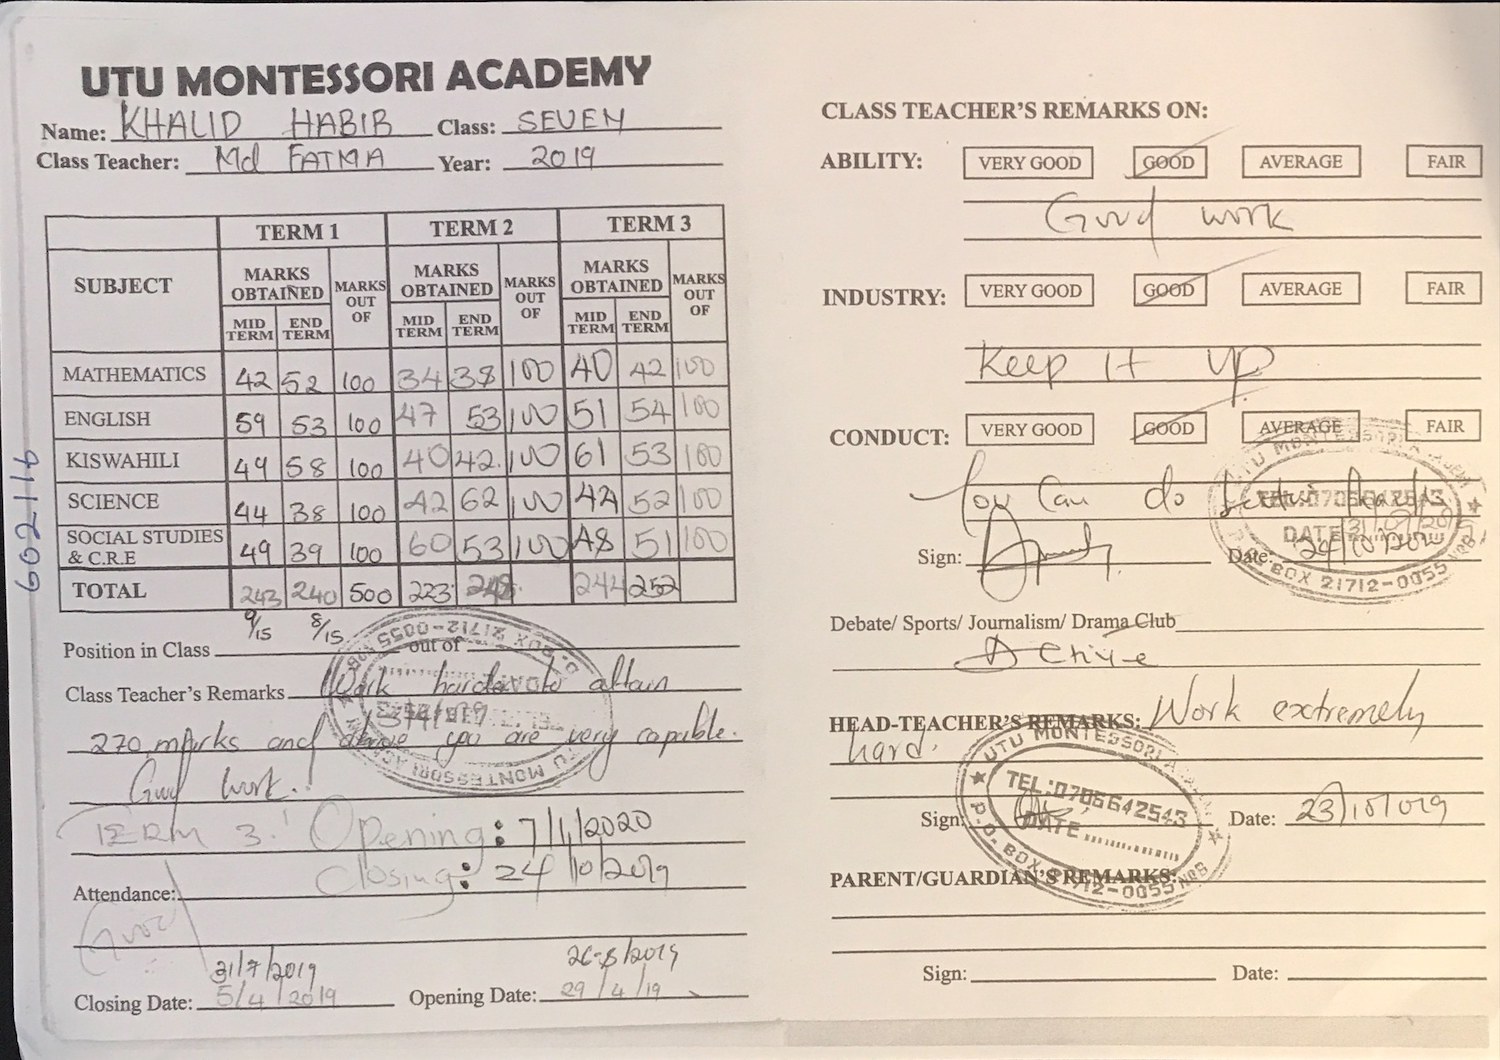 UTU MONTESSORI ACADEMY
Name: KHALID HABIB Class: SEVEN
Class Teacher: Md FATMA Year: 2019
TERM 1 TERM 2 TERM 3
SUBJECT MARKS OBTAINED MARKS OUT OF MARKS OBTAINED MARKS OUT OF MARKS OBTAINED MARKS OUT OF
MID TERM END TERM MID TERM END TERM MID TERM END TERM
MATHEMATICS 42 52 100 34 38 100 40 42 100
ENGLISH 59 53 100 47 53 100 51 54 100
KISWAHILI 49 58 100 40 42 100 61 53 100
SCIENCE 44 38 100 42 62 100 44 52 100
SOCIAL STUDIES & C.R.E 49 39 100 60 53 100 48 51 100
TOTAL 243 240 500 223 248 244 252
9/15 8/15
Position in Class out of
Class Teacher's Remarks Work hard to attain
270 marks and above you are very capable.
Good work.
TERM 3: Opening: 7/1/2020
Closing: 24/10/2019
Attendance:
Good
31/7/2019 26-8/2019
Closing Date: 5/4/2019 Opening Date: 29/4/19
602116
CLASS TEACHER'S REMARKS ON:
ABILITY: VERY GOOD GOOD AVERAGE FAIR
Good work
INDUSTRY: VERY GOOD GOOD AVERAGE FAIR
Keep it up
CONDUCT: VERY GOOD GOOD AVERAGE FAIR
You can do
Sign: Date: 24/10/2019
UTU MONTESSORI ACADEMY
TEL:0706642543
DATE 31/07/2019
P.O. BOX 21712-0055 NRB
Debate/ Sports/ Journalism/ Drama Club
Active
HEAD-TEACHER'S REMARKS: Work extremely
hard.
UTU MONTESSORI
TEL:0706642543
DATE
P.O. BOX 21712-0055 NRB
Sign: Date: 23/10/019
PARENT/GUARDIAN'S REMARKS:
Sign: Date: